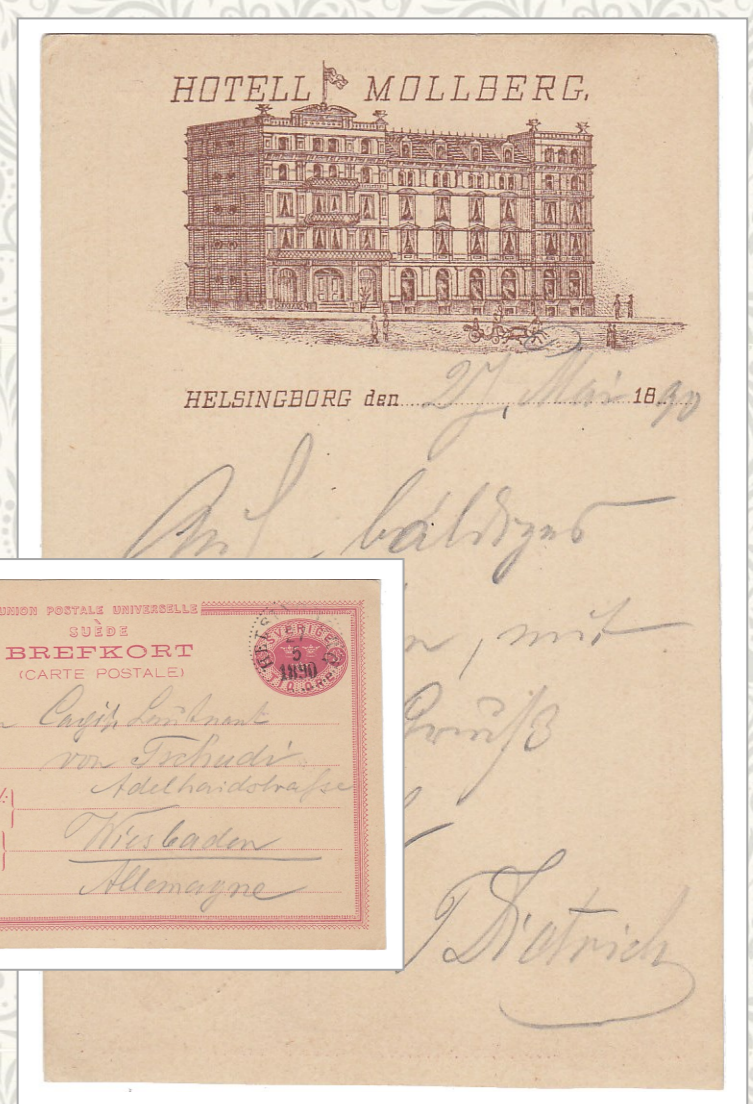 HOTELL MOLLBERG.
HELSINGBORG den 27, Mai 1890
Auf baldiges
mit
Gruß
T Dietrich
UNION POSTALE UNIVERSELLE
SUÈDE
BREFKORT
(CARTE POSTALE)
SVERIGE
27
5
1890
Leutnant
von Tschudi
Adelhaidstrasse
Wiesbaden
Allemagne